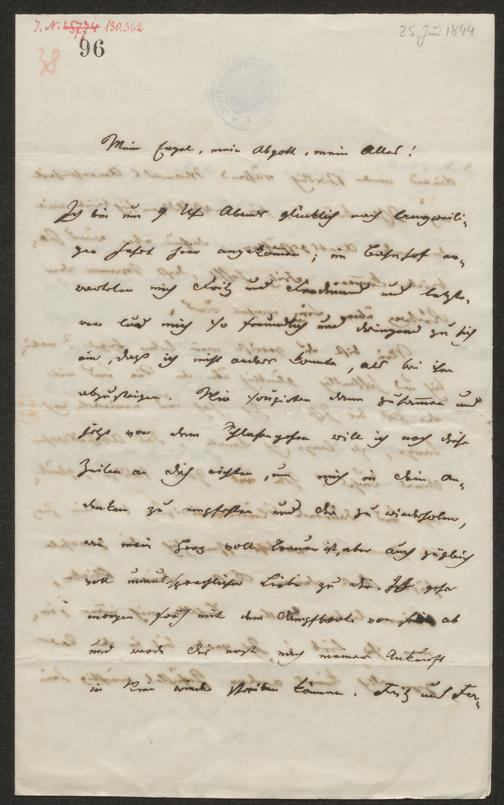 I. N. 130.362
25. Juni 1844
96
38
Mein Engel, mein Abgott, mein Alles!
Ich bin um 9 Uhr Abends glücklich nach langweili-
ger Fahrt hier angekommen; im Bahnhof er-
warteten mich Fritz und Ferdinand und letzte-
rer lud mich so freundlich und dringend zu sich
ein, daß ich nicht anders konnte, als bei ihm
abzusteigen. Wir soupirten dann zusammen und
jetzt vor dem Schlafengehen will ich noch diese
Zeilen an dich richten, um mich in dein An-
denken zu empfehlen und dir zu wiederholen,
wie mein Herz voll Trauer ist, aber auch zugleich
voll unaussprechlicher Liebe zu dir. Ich gehe
morgen früh mit dem Dampfboote von ab
und werde dir erst nach meiner Ankunft
in wieder schreiben können. Fritz und Fer-